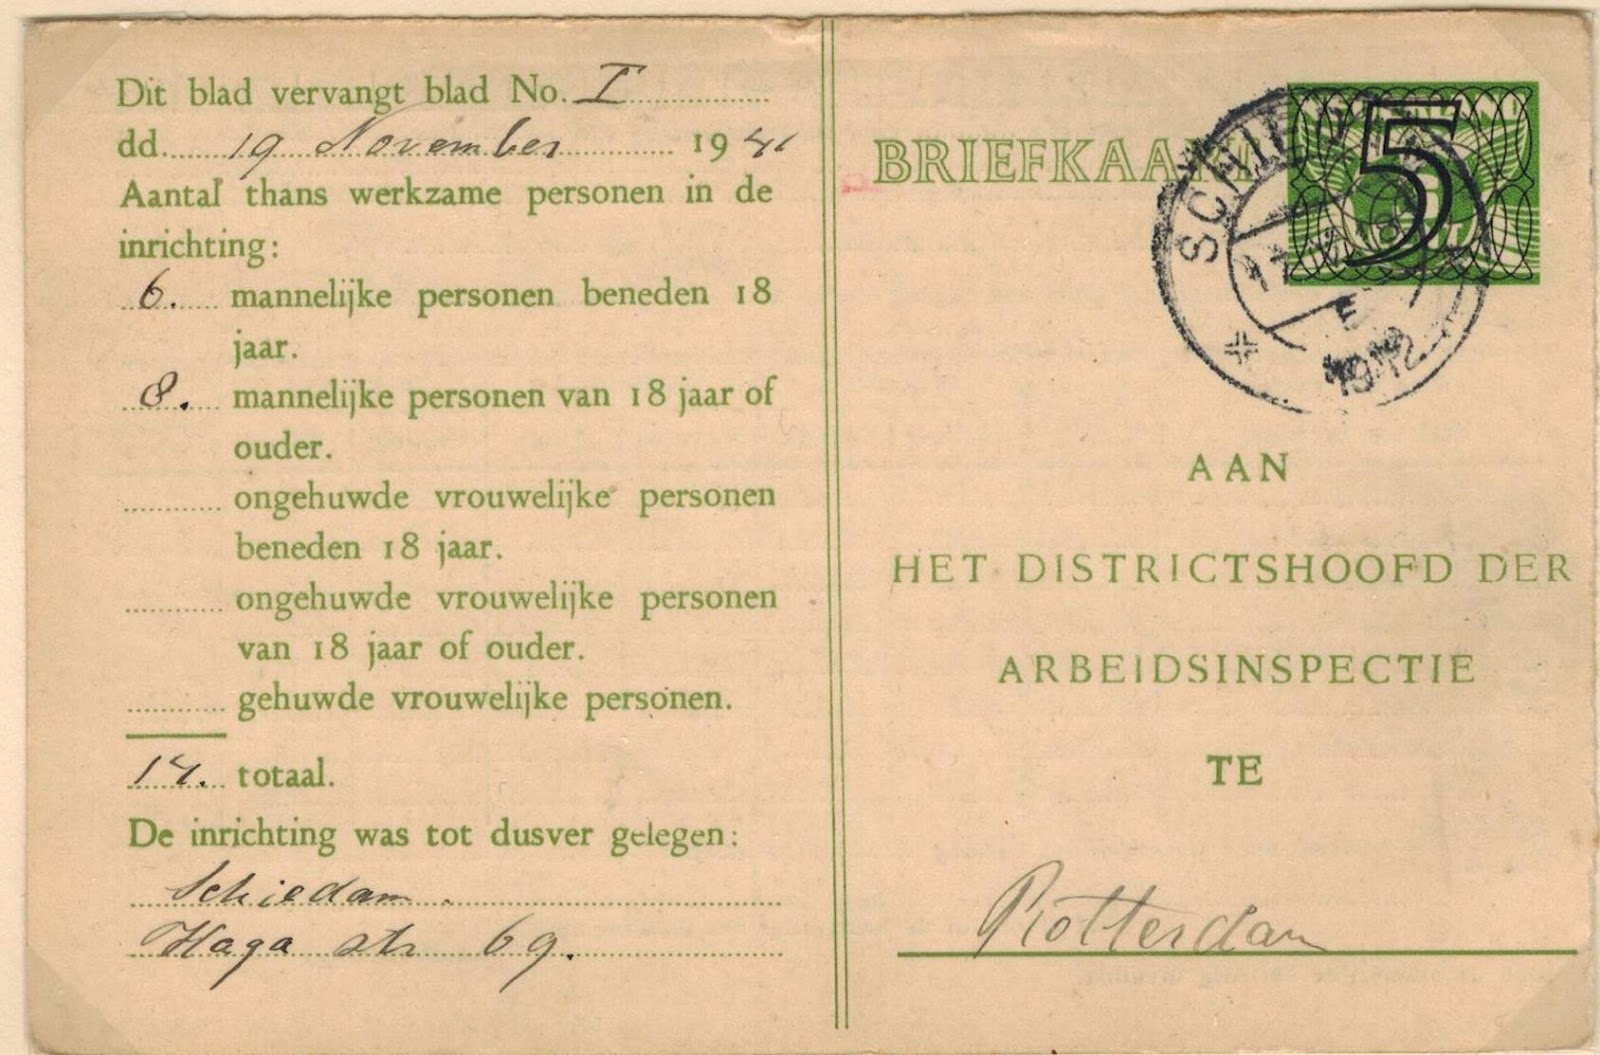 Dit blad vervangt blad No. I
dd 19 November 1941
Aantal thans werkzame personen in de
inrichting:
6. mannelijke personen beneden 18
jaar.
8. mannelijke personen van 18 jaar of
ouder.
ongehuwde vrouwelijke personen
beneden 18 jaar.
ongehuwde vrouwelijke personen
van 18 jaar of ouder.
gehuwde vrouwelijke personen.
14. totaal.
De inrichting was tot dusver gelegen:
Schiedam.
Haga str 69.
BRIEFKAART
5
1942
AAN
HET DISTRICTSHOOFD DER
ARBEIDSINSPECTIE
TE
Rotterdam